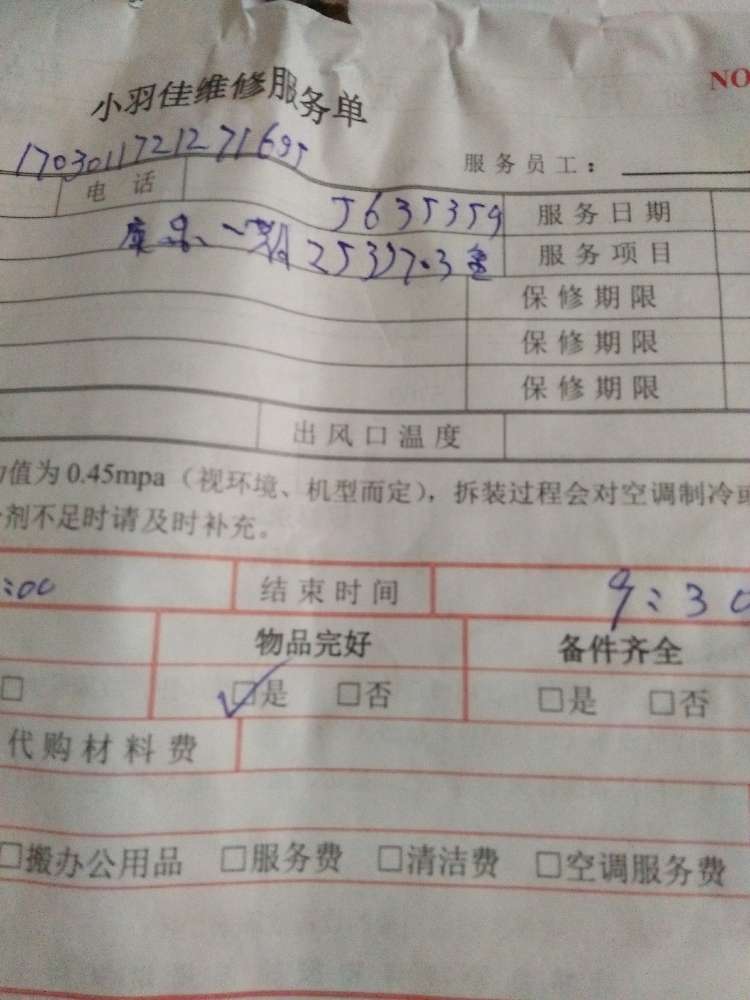 NO
小羽佳维修服务单
1703011721271695
服务员工：
电话 5635359 服务日期
康乐一村253号703室 服务项目
保修期限
保修期限
保修期限
出风口温度
值为0.45mpa（视环境、机型而定），拆装过程会对空调制冷或
剂不足时请及时补充。
:00 结束时间 9:30
物品完好 备件齐全
□ ☑是 □否 □是 □否
代购材料费
□搬办公用品 □服务费 □清洁费 □空调服务费